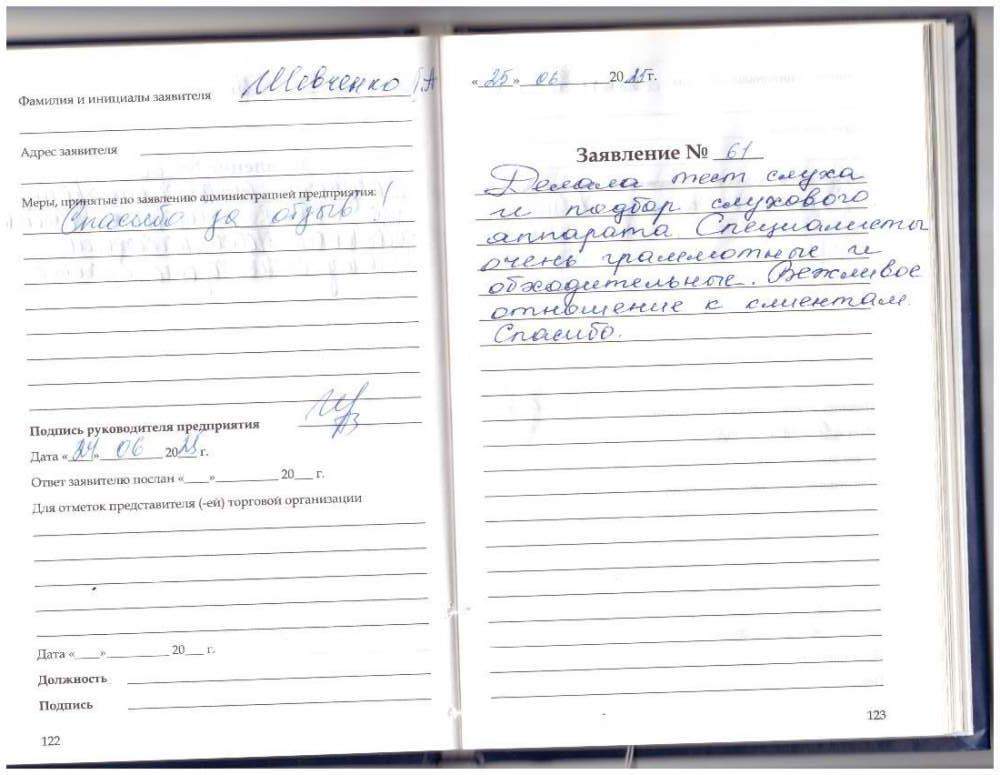 Фамилия и инициалы заявителя Шевченко Г.А
Адрес заявителя
Меры, принятые по заявлению администрацией предприятия:
Спасибо за отзыв!
Подпись руководителя предприятия
Дата «24» 06 2025 г.
Ответ заявителю послан «____»__________ 20___ г.
Для отметок представителя (-ей) торговой организации
Дата «____»__________ 20___ г.
Должность
Подпись
122
«25» 06 2025г.
Заявление № 61
Делала тест слуха
и подбор слухового
аппарата. Специалисты
очень грамотные и
обходительные. Вежливое
отношение к клиентам.
Спасибо.
123